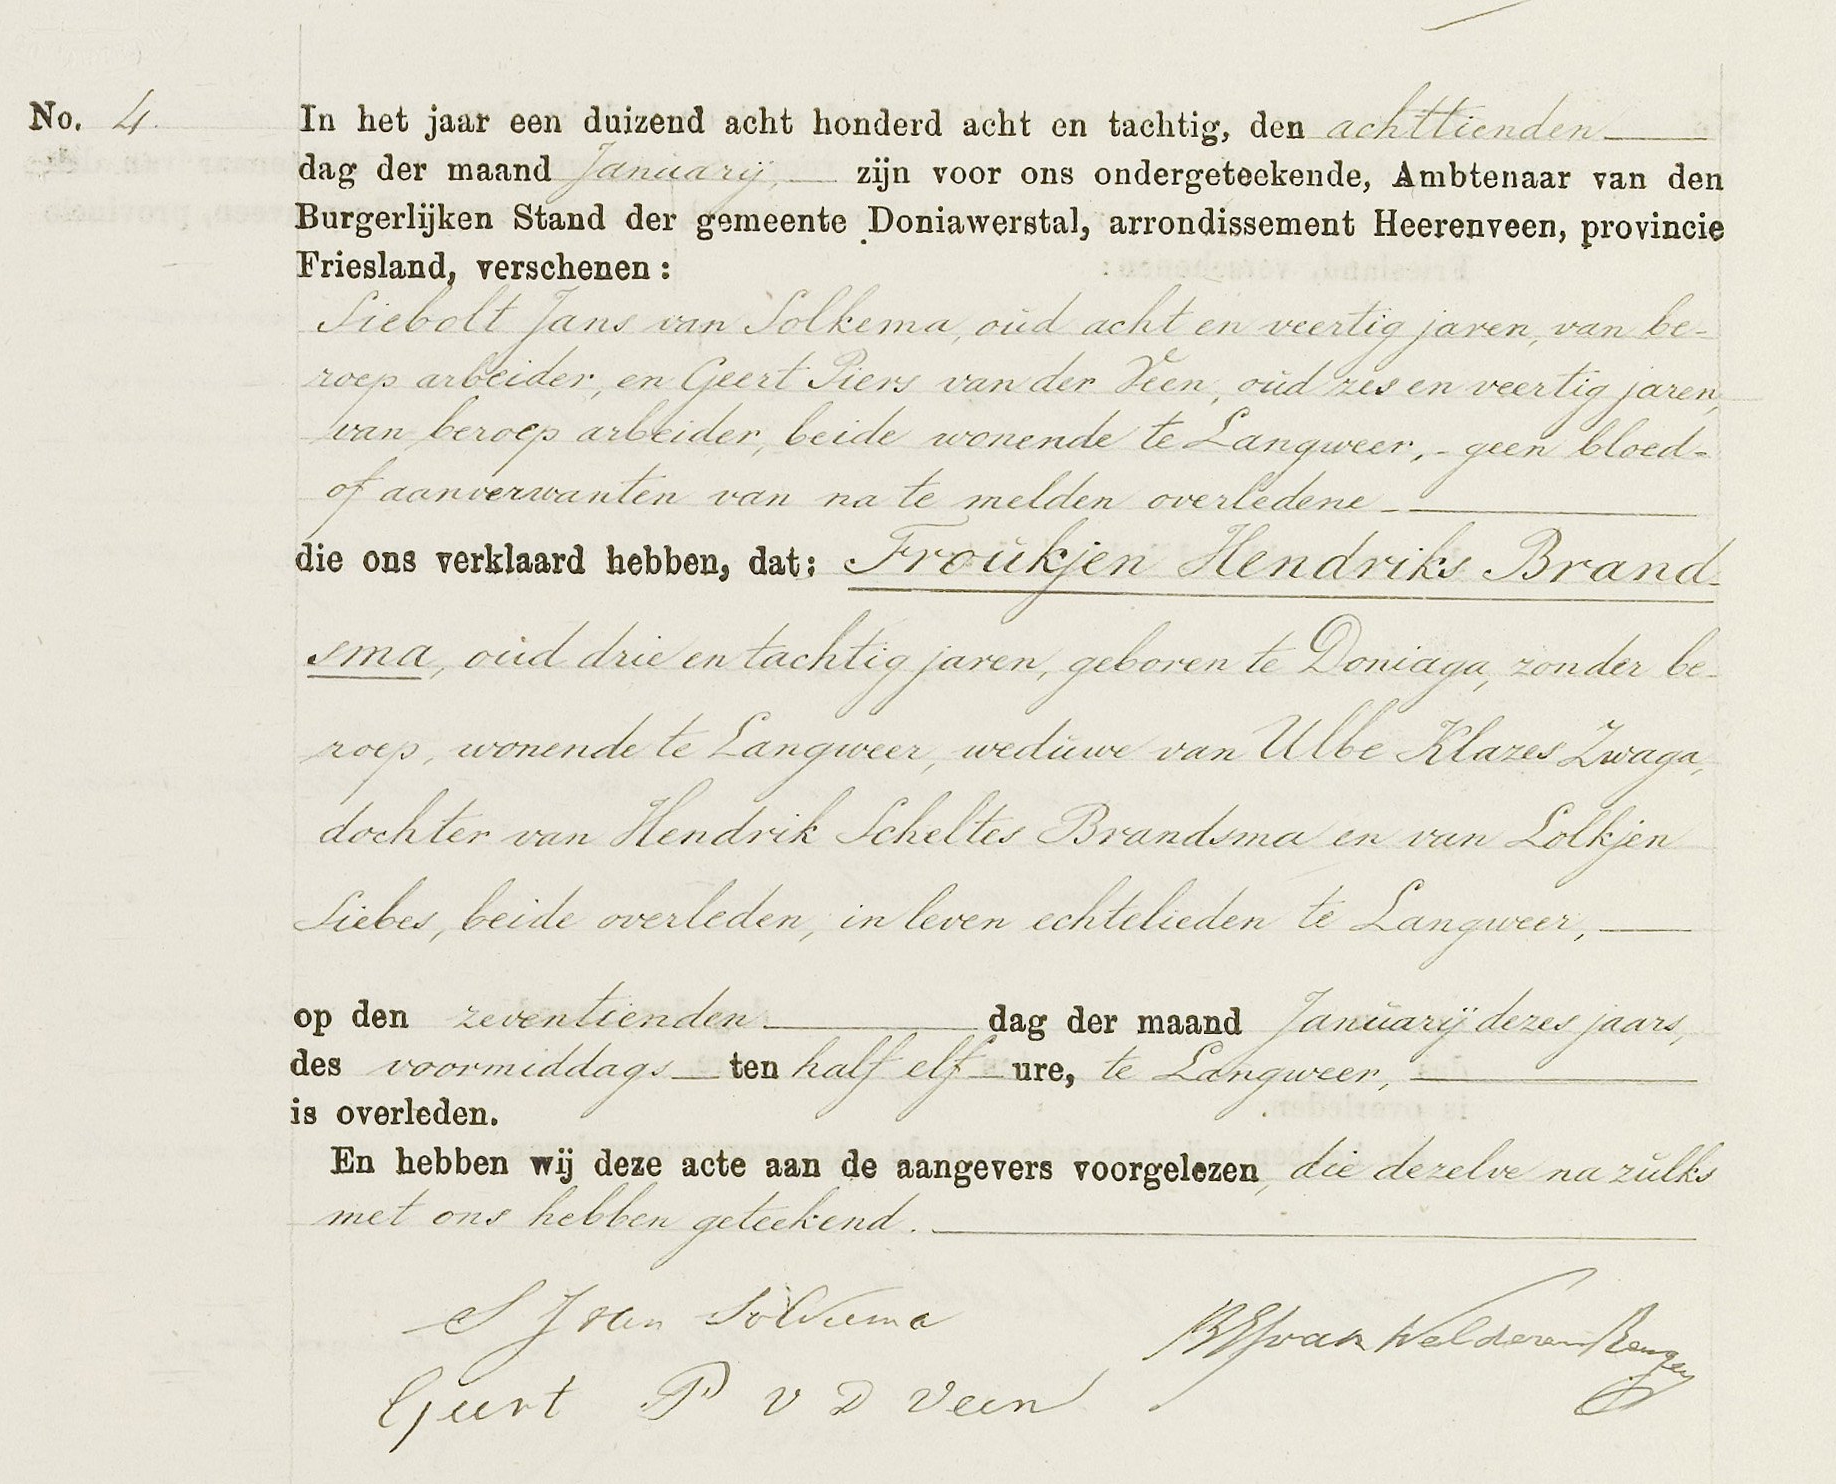 No. 4. In het jaar een duizend acht honderd acht en tachtig, den achttienden
dag der maand Januarij, zijn voor ons ondergeteekende, Ambtenaar van den
Burgerlijken Stand der gemeente Doniawerstal, arrondissement Heerenveen, provincie
Friesland, verschenen:
Siebolt Jans van Solkema, oud acht en veertig jaren, van be-
roep arbeider, en Geert Piers van der Veen, oud zes en veertig jaren,
van beroep arbeider, beide wonende te Langweer, - geen bloed-
of aanverwanten van na te melden overledene
die ons verklaard hebben, dat: Froukjen Hendriks Brand-
sma, oud drie en tachtig jaren, geboren te Doniaga, zonder be-
roep, wonende te Langweer, weduwe van Ulbe Klazes Zwaga,
dochter van Hendrik Scheltes Brandsma en van Lolkjen
Siebes, beide overleden, in leven echtelieden te Langweer,
op den zeventienden dag der maand Januarij dezes jaars,
des voormiddags ten half elf ure, te Langweer,
is overleden.
En hebben wij deze acte aan de aangevers voorgelezen, die dezelve na zulks
met ons hebben geteekend.
S J van Solkema
van Welderen Rengers
Geert P V D Veen